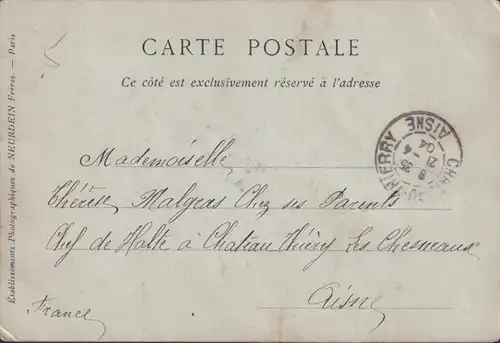 5
CARTE POSTALE
Ce côté est exclusivement réservé à l'adresse
Mademoiselle
Thérèse Malgras Chez ses Parents
Chef de Halte à Chateau Thiéry Les Chesneaux
Aisne
France
Etablissements Photographiques de NEURDEIN Frères. — Paris
THIERRY
AISNE
21 - 4
04